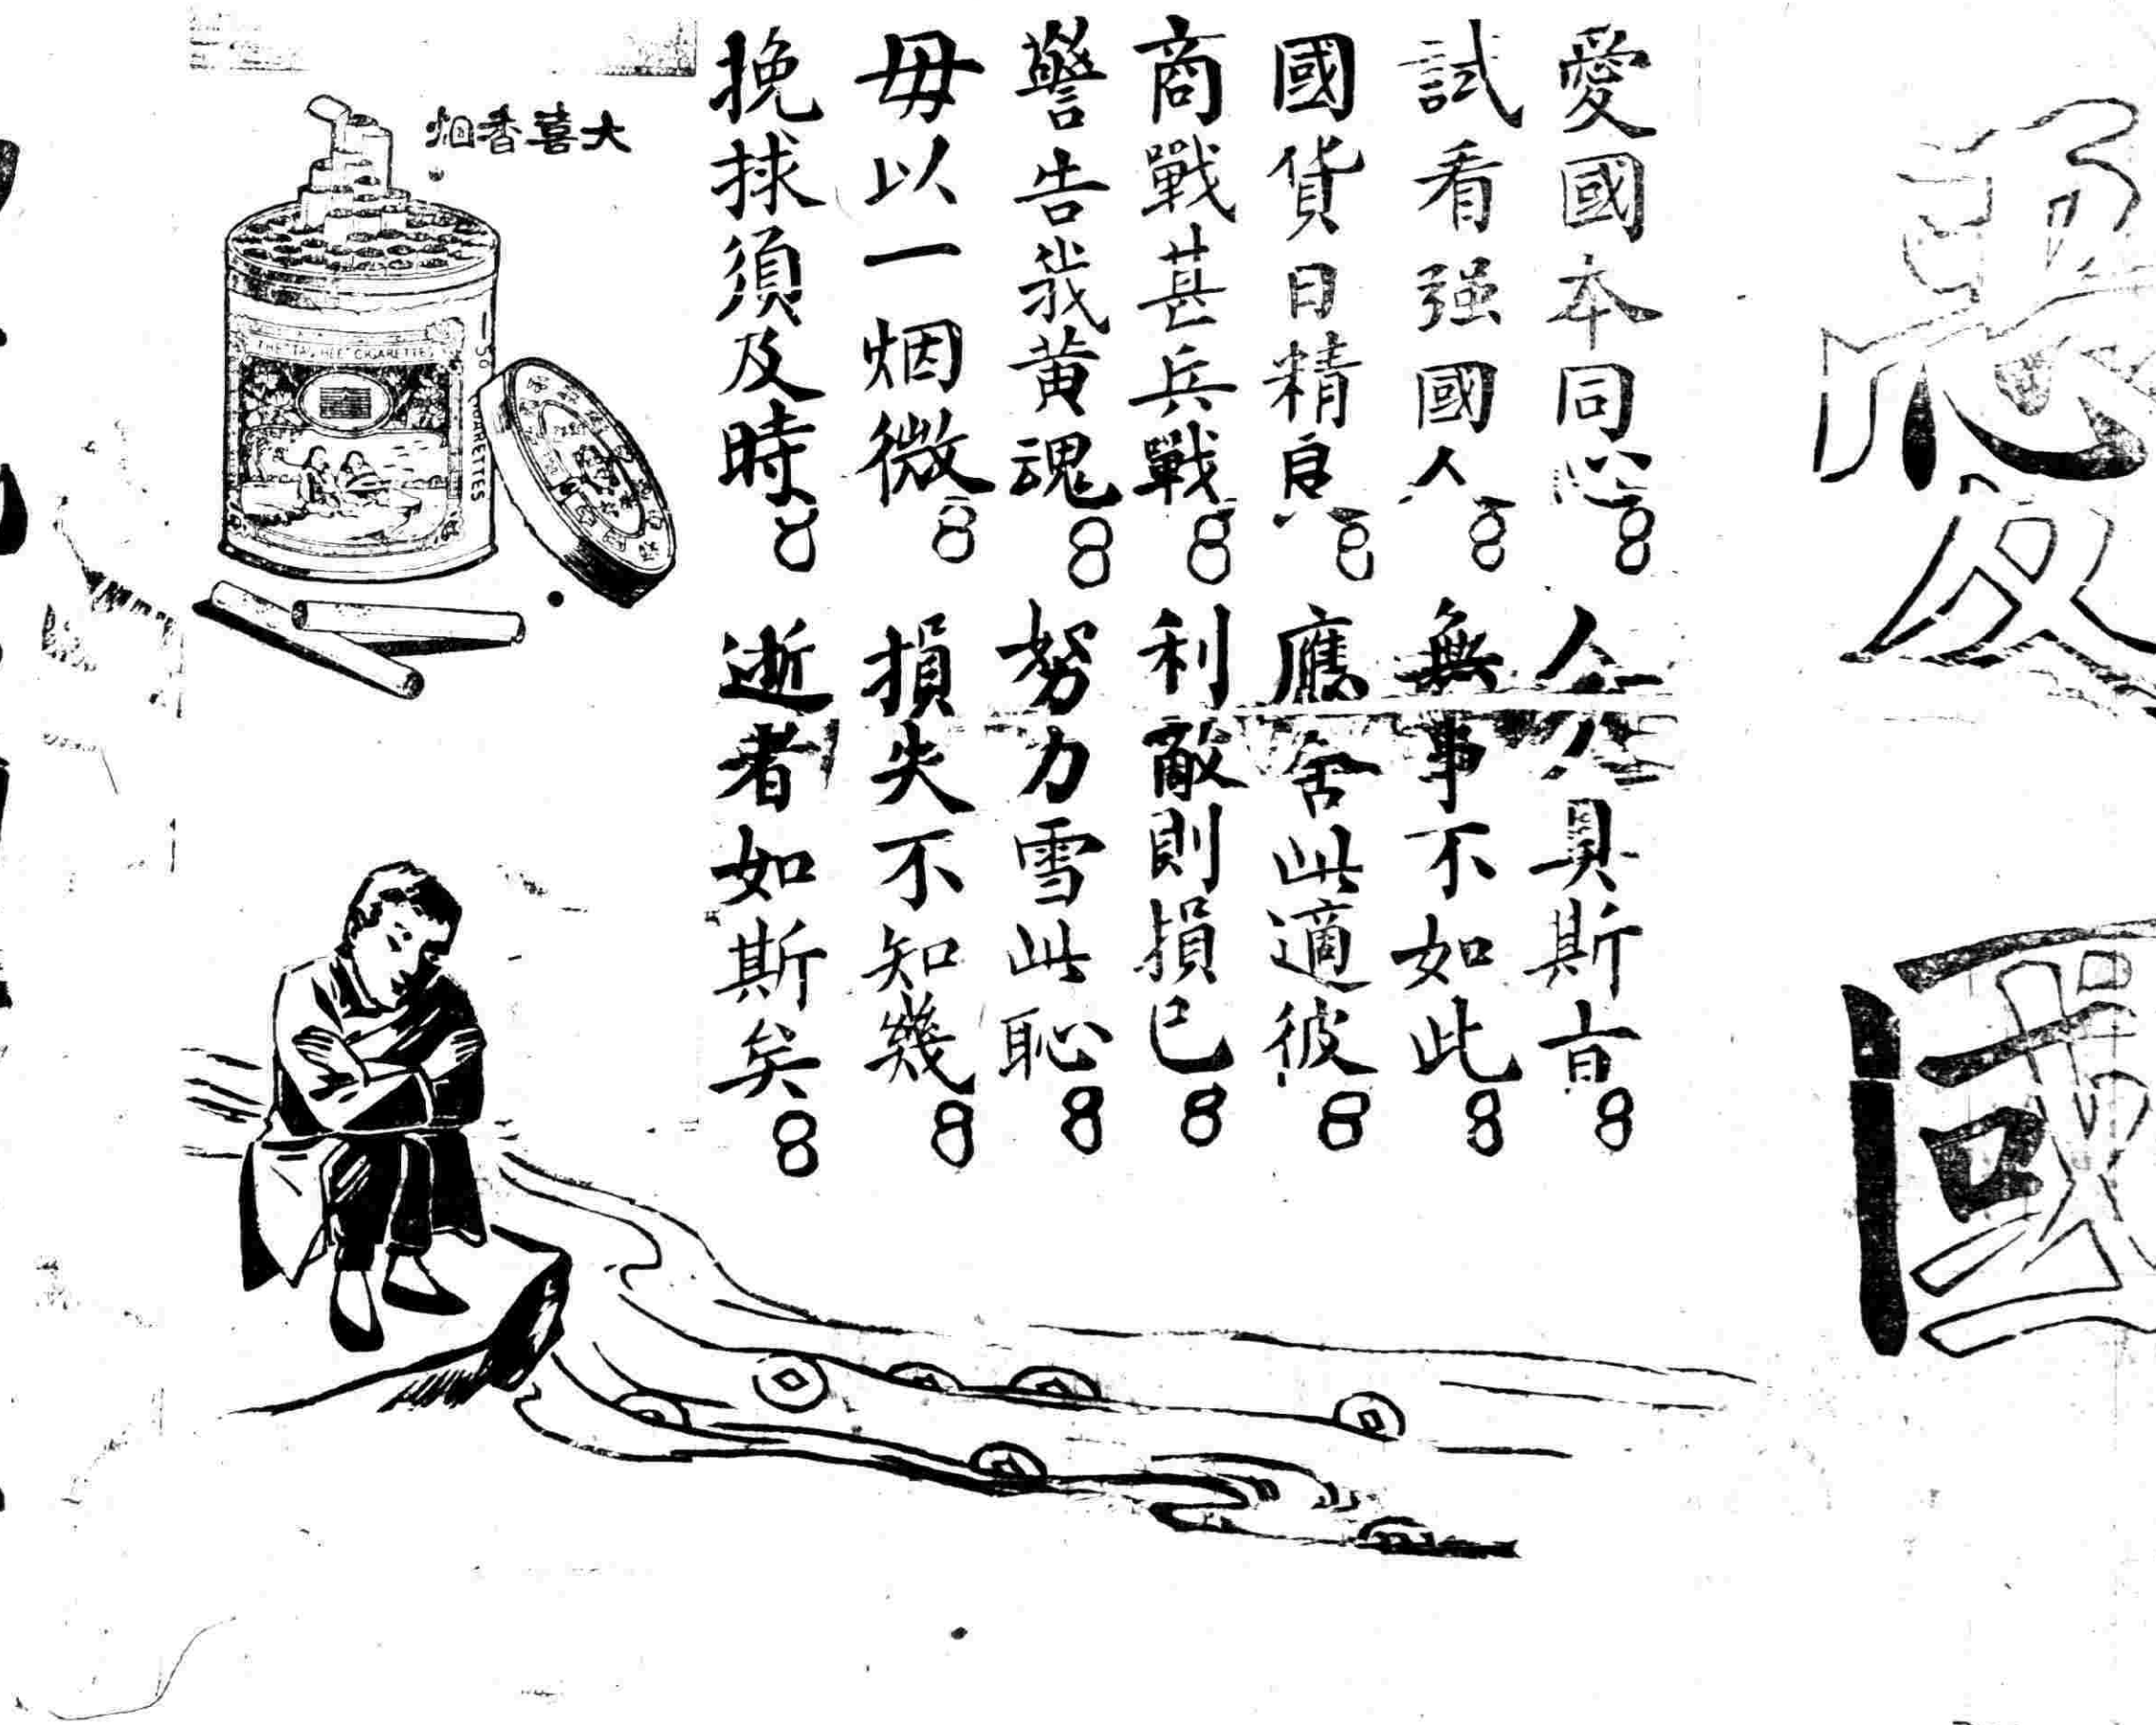 愛國
愛國本同心 人人具斯旨
試看强國人 無事不如此
國貨日精良 應舍此適彼
商戰甚兵戰 利敵則損己
警告我黄魂 努力雪此恥
毋以一烟微 損失不知幾
挽捄須及時 逝者如斯矣
大喜香烟
THE "TA HEE" CIGARETTES
50 CIGARETTES